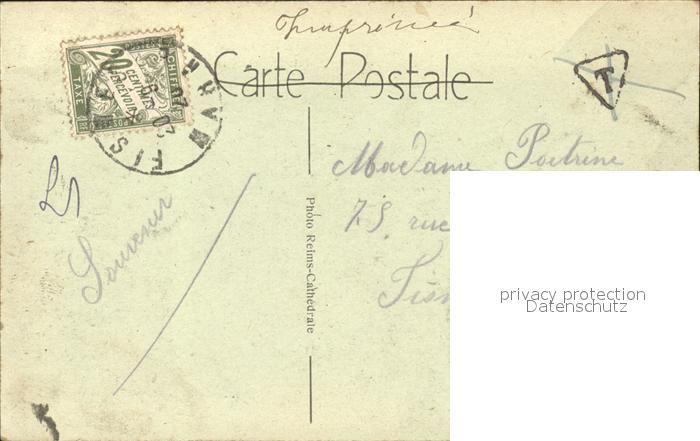 Imprimé
Carte Postale
T
20
CENTIMES
À PERCEVOIR
TAXE
FISMES
MARNE
Madame Poitrine
75 rue
Fism
Souvenir
Photo Reims-Cathédrale
privacy protection
Datenschutz